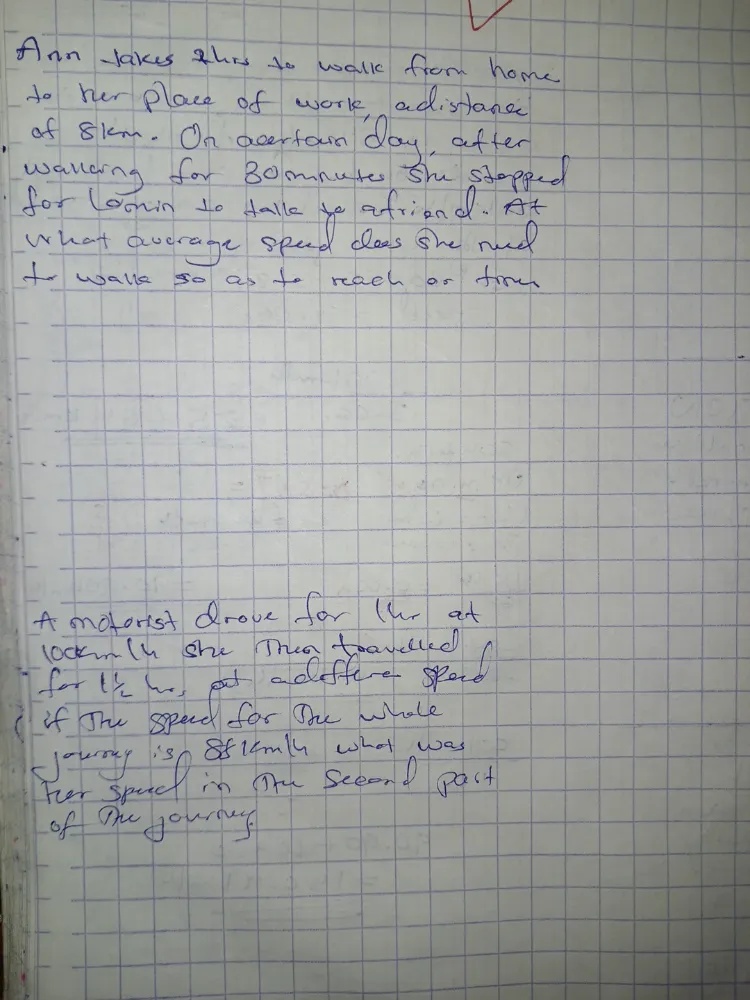 Ann takes 2hrs to walk from home
to her place of work, a distance
of 8km. On acertain day, after
walking for 30minutes she stopped
for 10min to talk to afriend. At
what average speed does she need
to walk so as to reach on time
A motorist drove for 1hr at
100km/h she then travelled
for 1½ hrs, at adifferen speed
if the speed for the whole
journey is 88km/h what was
her speed in the second part
of the journey.